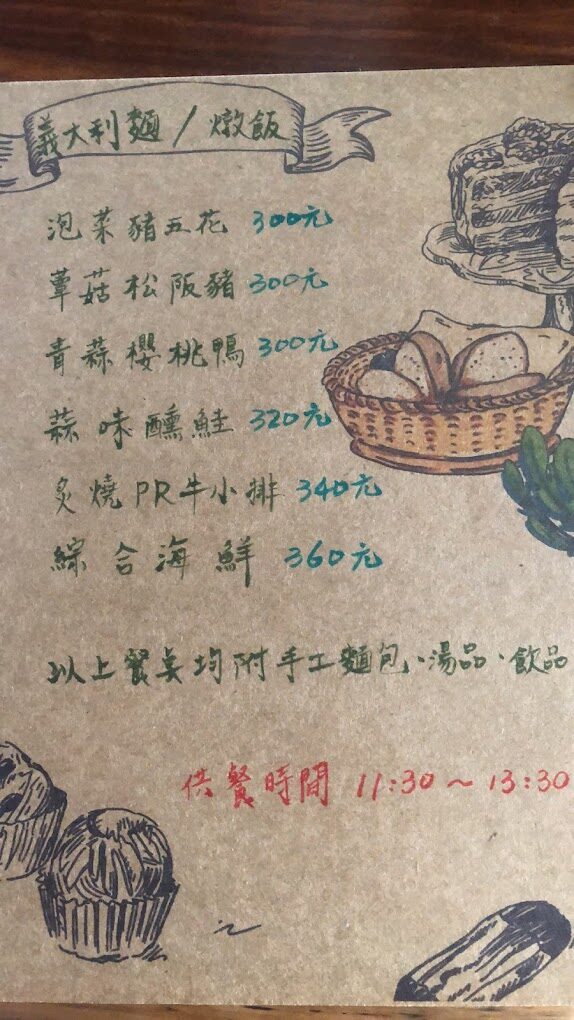 義大利麵/燉飯
泡菜豬五花 300元
蕈菇松阪豬 300元
青蒜櫻桃鴨 300元
蒜味醺鮭 320元
炙燒PR牛小排 340元
綜合海鮮 360元
以上餐點均附手工麵包、湯品、飲品
供餐時間 11:30～13:30